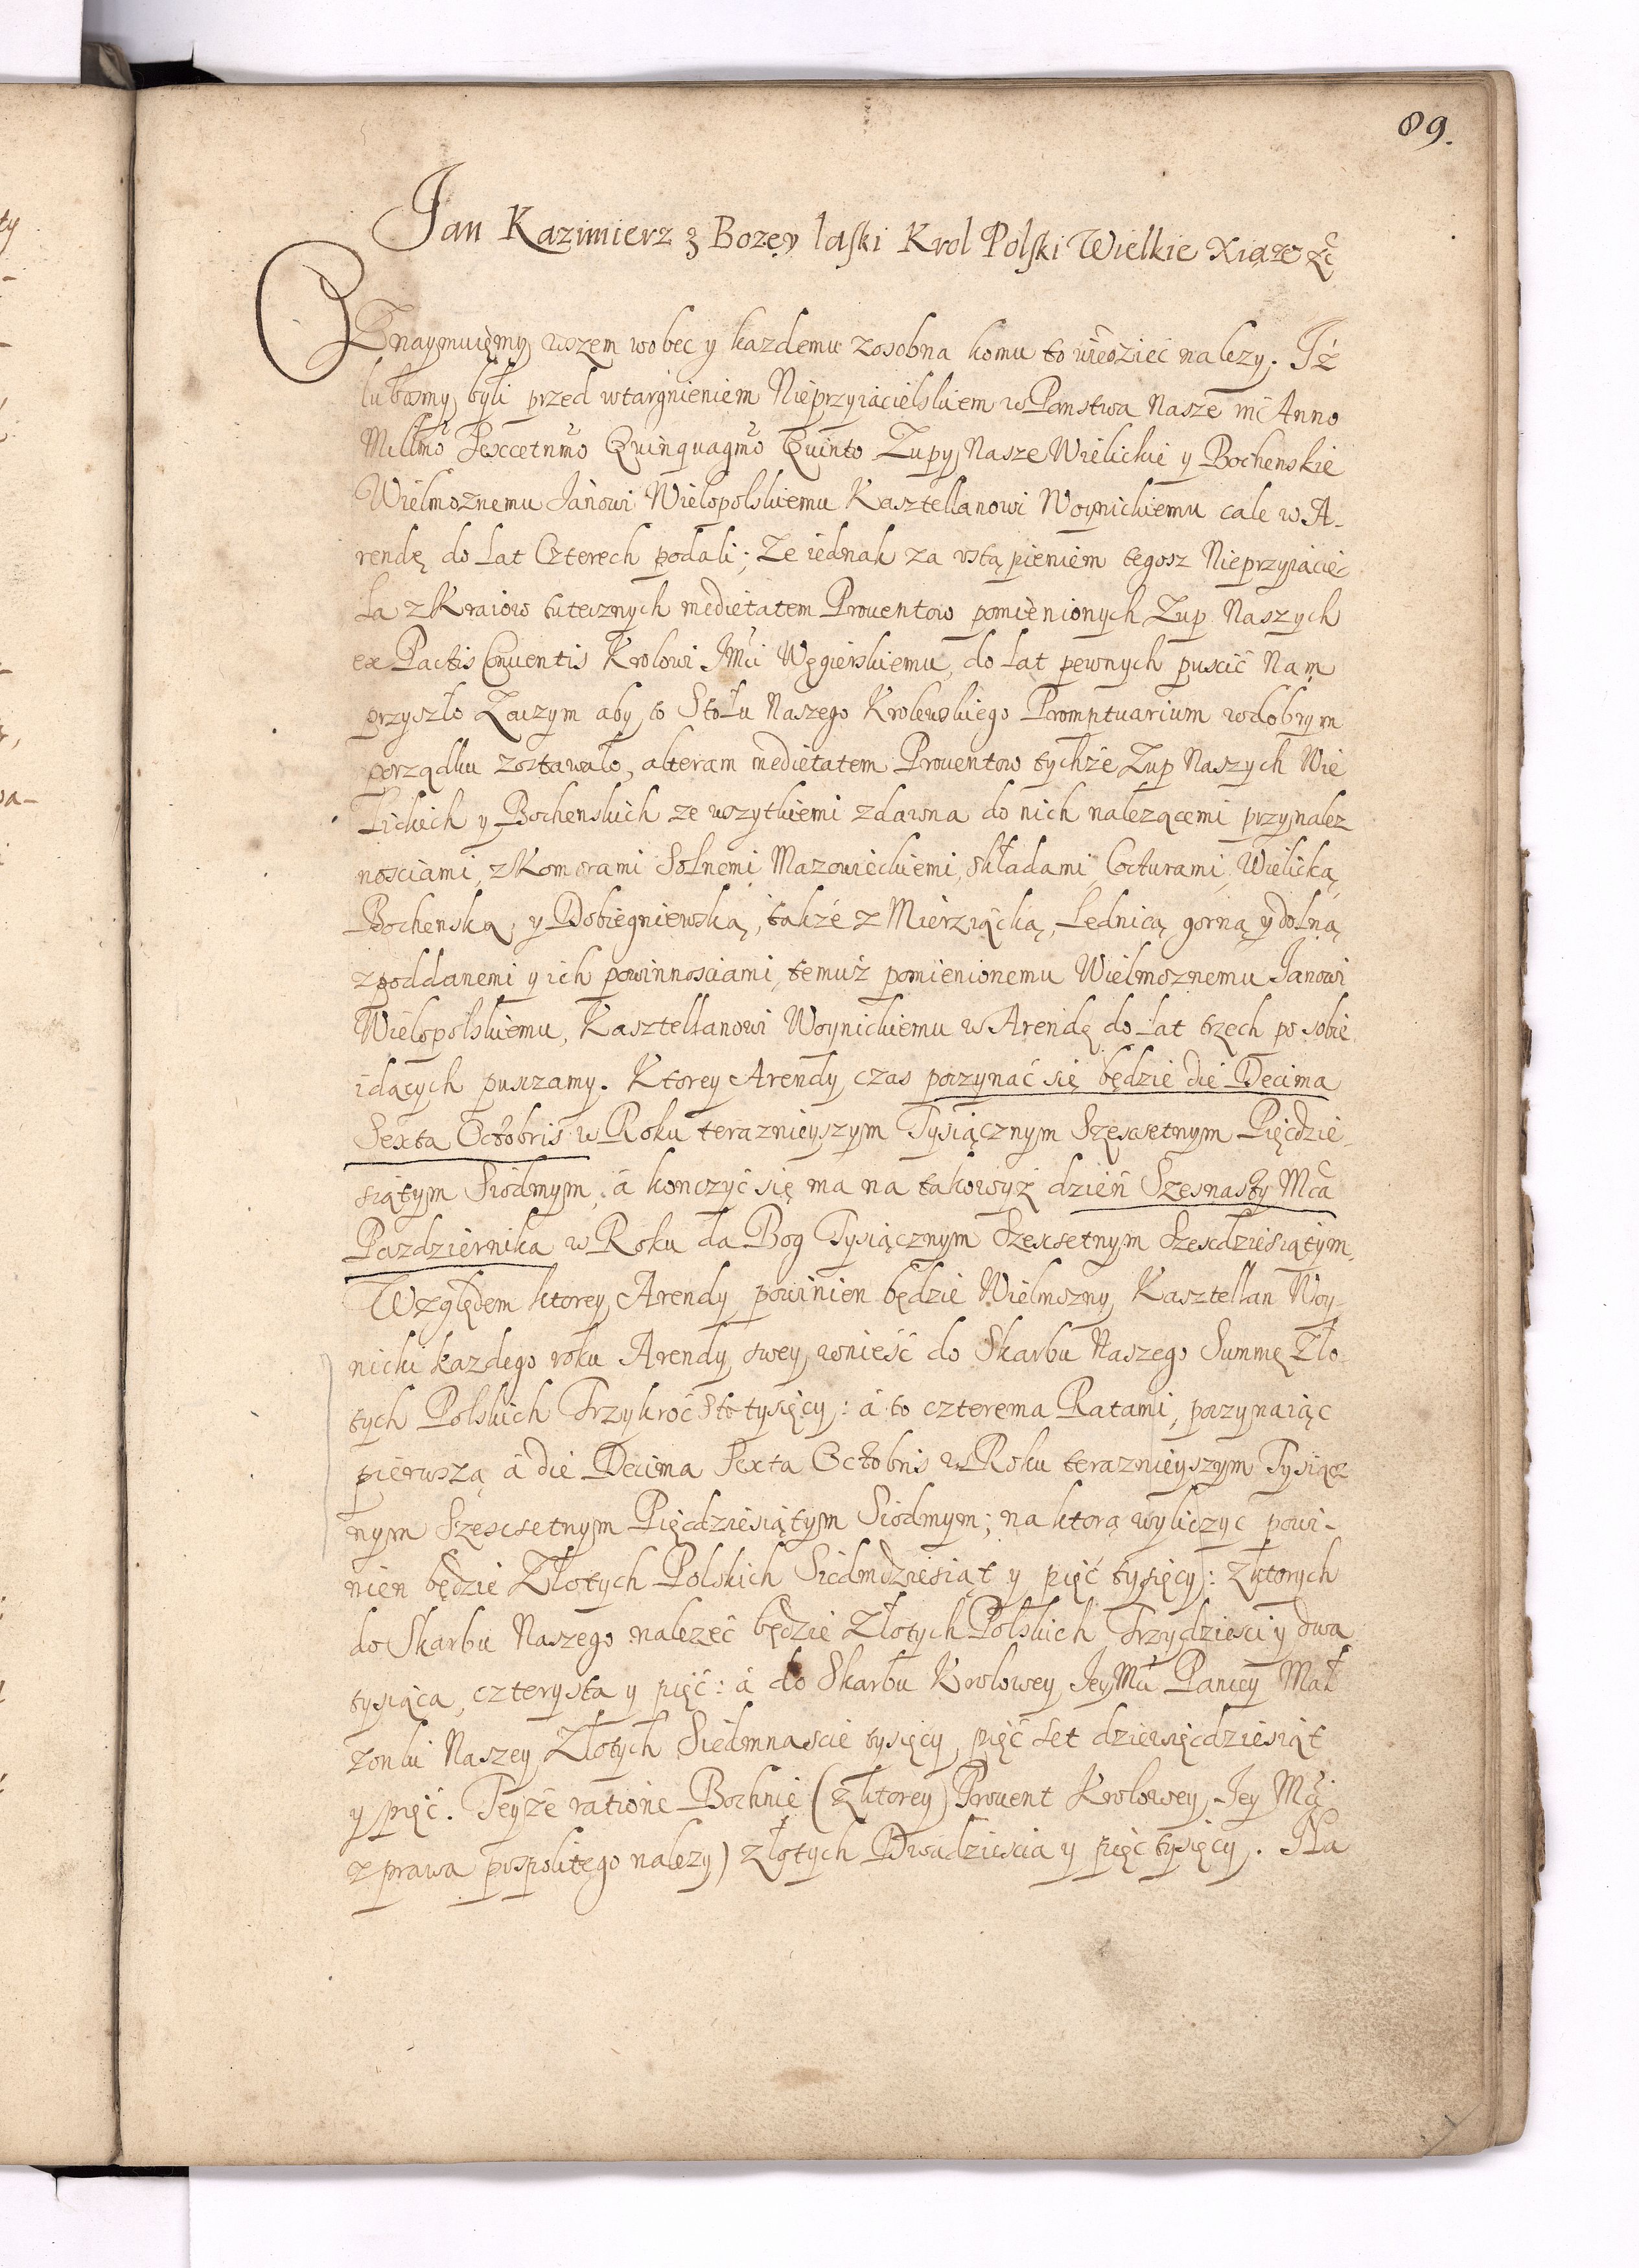 89.
Jan Kazimierz z Bozey łaski Krol Polski Wielkie Xiąze &c
Oznaymuiemy wszem wobec y kazdemu zosobna komu to wiedzieć nalezy. Iż
lubosmy byli przed wtargnieniem Nieprzyiacielskiem w Panstwa Nasze in Anno
Millmo Sexcetnmo Quinquagmo Quinto Zupy Nasze Wielickie y Bochenskie
Wielmoznemu Janowi Wielopolskiemu Kasztellanowi Woynickiemu cale w A-
rendę do Lat Czterech podali; Ze iednak za ustąpieniem tegosz Nieprzyiacie-
la z Kraiow tutecznych medietatem Prouentow pomienionych Zup Naszych
ex Pactis Conuentis Krolowi JMci Węgierskiemu, do Lat pewnych puscić Nam
przyszło Zaczym aby to Stołu Naszego Krolewskiego Promptuarium w dobrym
porządku zostawało, alteram medietatem Prouentow tychże Zup Naszych Wie
lickich y Bochenskich ze wszytkiemi zdawna do nich nalezącemi przynalez
nosciami, z Komorami Solnemi Mazowieckiemi, składami, Cocturami, Wielicką,
Bochenską, y Dobiegniewską, także z Mierziącką, Lednicą gorną y dolną
z poddanemi y ich powinnosciami, temuż pomienionemu Wielmoznemu Janowi
Wielopolskiemu, Kasztellanowi Woynickiemu w Arendę do Lat trzech po sobie
idących puszczamy. Ktorey Arendy czas poczynać się będzie die Decima
Sexta Octobris w Roku teraznieyszym Tysiącznym Szescsetnym Pięcdzie-
siątym Siodmym, á konczyć się ma na takowyż dzień Szesnasty Mca
Pazdziernika w Roku da Bog Tysiącznym Szescsetnym Szescdziesiątym.
Względem ktorey Arendy powinien będzie Wielmozny Kasztellan Woy-
nicki kazdego roku Arendy swey wnieść do Skarbu Naszego Summę Zło-
tych Polskich Trzykroć sto tysięcy: á to czterema Ratami, poczynaiąc
pierwszą á die Decima Sexta Octobris w Roku teraznieyszym Tysiącz
nym Szescsetnym Pięcdziesiątym Siodmym; na ktorą wyliczyc powi-
nien będzie Złotych Polskich Siedmdziesiąt y pięć tysięcy: z ktorych
do Skarbu Naszego nalezeć będzie Złotych Polskich Trzydziesci y dwa
tysiąca, czterysta y pięć: á do Skarbu Krolowey Jey Mci Paniey Mał
zonki Naszey Złotych Siedmnascie tysięcy, pięć set dziewięcdziesiąt
y pięć. Teyże ratione Bochnie (z ktorey Prouent Krolowey Jey Mci
z prawa pospolitego nalezy) złotych Dwadziescia y pięć tysięcy. Na